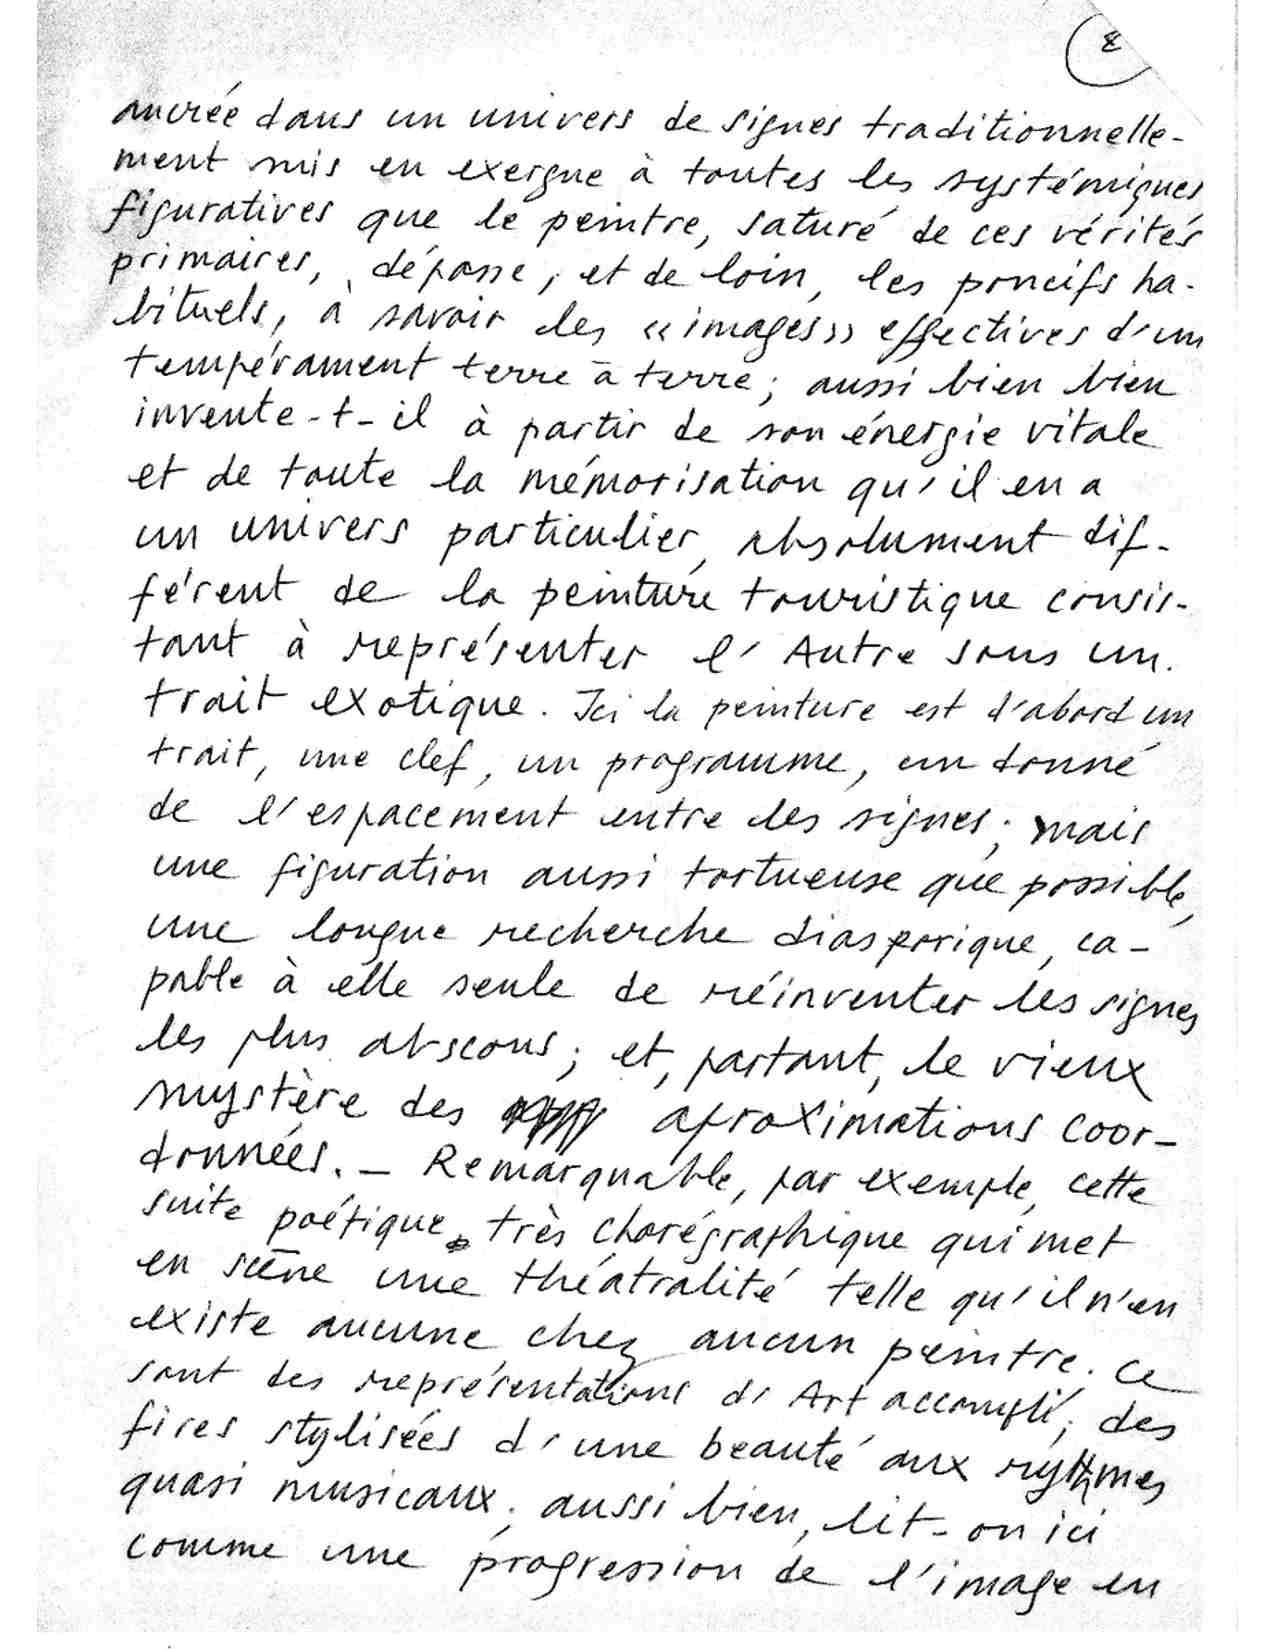 8
ancrée dans un univers de signes traditionnelle-
ment mis en exergue à toutes les systémiques
figuratives que le peintre, saturé de ces vérités
primaires, dépasse, et de loin, les poncifs ha-
bituels, à savoir les «images» effectives d'un
tempérament terre à terre; aussi bien bien
invente-t-il à partir de son énergie vitale
et de toute la mémorisation qu'il en a
un univers particulier, absolument dif-
férent de la peinture touristique consis-
tant à représenter l'Autre sous un
trait exotique. Ici la peinture est d'abord un
trait, une clef, un programme, un donné
de l'espacement entre les signes; mais
une figuration aussi tortueuse que possible,
une longue recherche diasporique, ca-
pable à elle seule de réinventer les signes
les plus abscons; et, partant, le vieux
mystère des aproximations coor-
données. _ Remarquable, par exemple, cette
suite poétique très chorégraphique qui met
en scène une théatralité telle qu'il n'en
existe aucune chez aucun peintre. Ce
sont des représentations d'Art accompli; des
fires stylisées d'une beauté aux rythmes
quasi musicaux; aussi bien, lit-on ici
comme une progression de l'image en